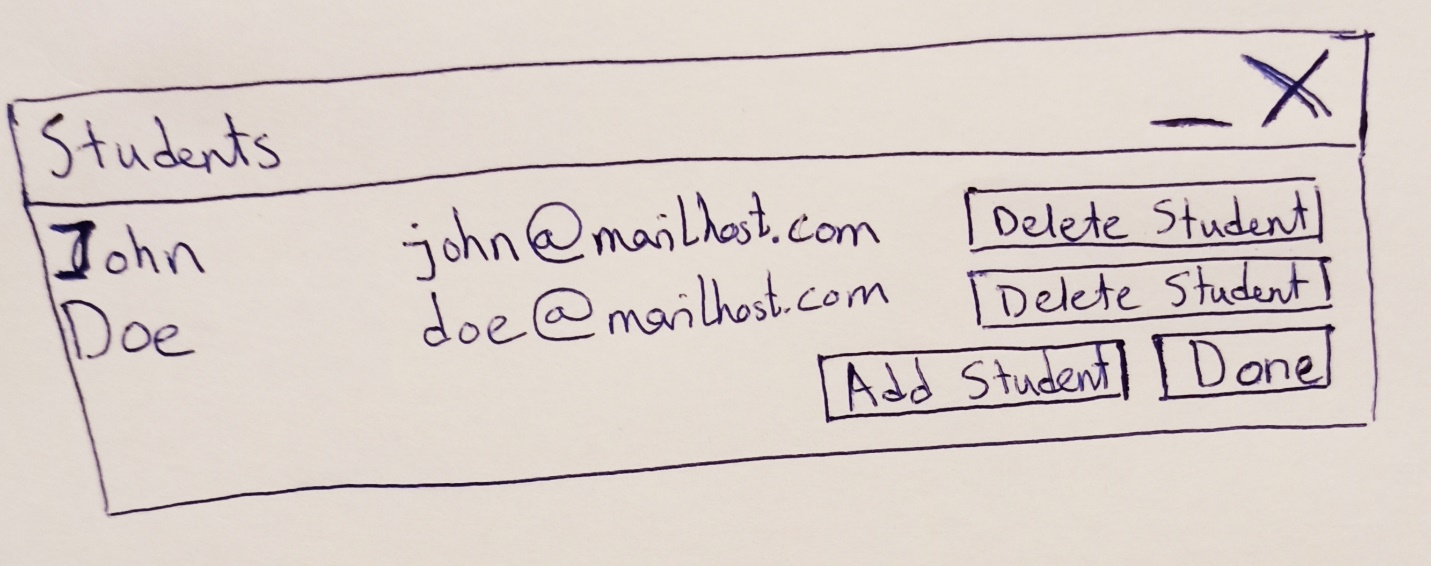 Students
John john@mailhost.com Delete Student
Doe doe@mailhost.com Delete Student
Add Student Done